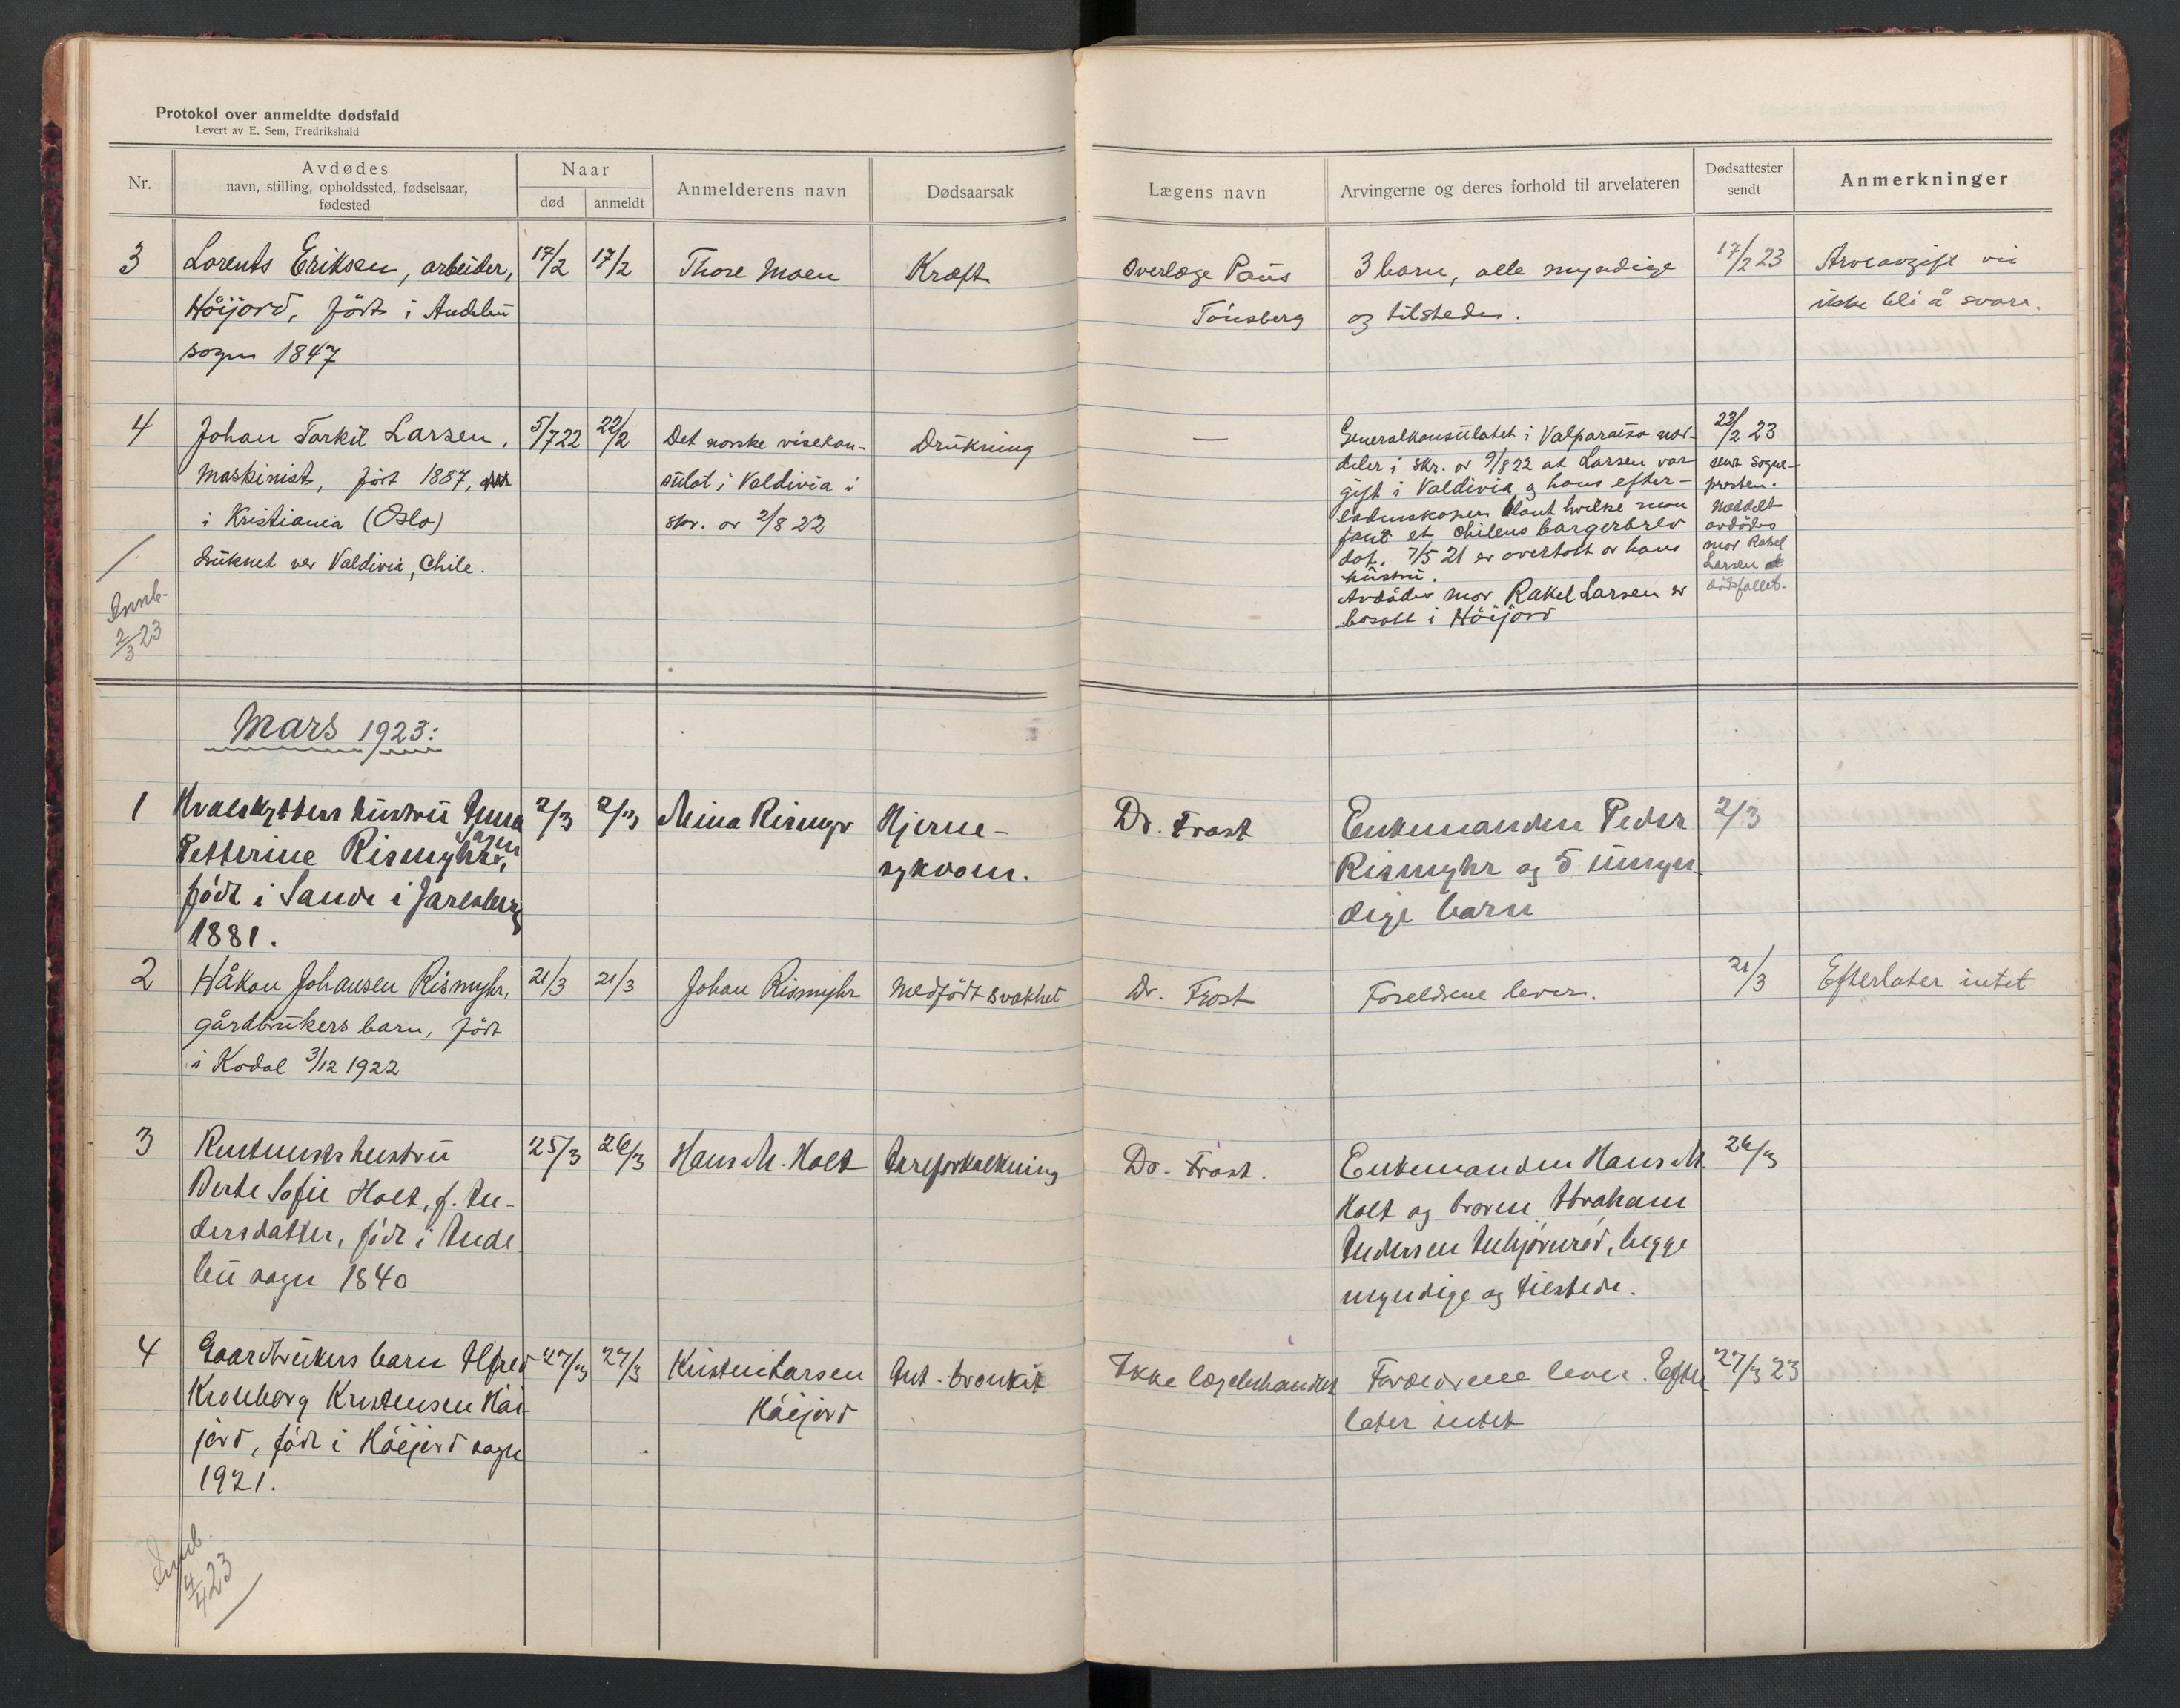 Protokol over anmeldte dødsfald
Levert av E. Sem, Fredrikshald
Nr.
Avdødes
navn, stilling, opholdssted, fødselsaar,
fødested
Naar
død
anmeldt
Anmelderens navn
Dødsaarsak
Lægens navn
Arvingerne og deres forhold til arvelateren
Dødsattester
sendt
Anmerkninger
3
Lorents Eriksen, arbeider,
Höijord, född i Andebu
sogn 1847
17/2
17/2
Thore Moen
Kræft
Overlæge Paus
Tönsberg
3 barn, alle myndige
og tilstede.
17/2 23
Arveavgift vil
ikke bli å svare.
4
Johan Torkil Larsen,
maskinist, fört 1887,
i Kristiania (Oslo)
druknet ver Valdivia, Chile.
5/7 22
22/2
Det norske visekon-
sulat i Valdivia i
skr. av 2/8 22
Drukning
—
Generalkonsulatet i Valparaiso med-
deler i skr. av 9/8 22 at Larsen var
gift i Valdivia og hans efter-
ladenskaper blant hvilke man
fant et chilens borgerbrev
dat. 7/5 21 er overtatt av hans
hustru.
Avdødes mor Rakel Larsen er
bosatt i Höijord
23/2 23
sent sogne-
presten.
Meddelt
avdødes
mor Rakel
Larsen
dödsfallet.
Innb.
2/3 23
Mars 1923:
1
Hvalskytters hustru Anna
Petterine Rismyhr,
födt i Sande i Jarlsberg
1881.
2/3
2/3
Mina Rismyr
Hjerne-
sykdom.
Dr. Frost
Enkemanden Peder
Rismyhr og 5 umyn-
dige barn
2/3
2
Håkon Johansen Rismyhr,
gårdbrukers barn, fört
i Kodal 3/12 1922
21/3
21/3
Johan Rismyhr
Medfödt svakhet
Dr. Frost
Foreldrene lever.
21/3
Efterlater intet
3
Rentenists hustru
Berte Sofie Holt, f. An-
dersdatter, födt i Ande
bu sogn 1840
25/3
26/3
Hans M. Holt
Aareforkalkning
Dr. Frost.
Enkemanden Hans M.
Holt og broren Abraham
Andersen, begge
myndige og tilstede.
26/3
4
Gaardbrukers barn Alfred
Kronborg Kristensen Höi-
jord, födt i Höijord sogn
1921.
27/3
27/3
Kristen Larsen
Höijord
Akt. bronkit
Ikke lægebehandlet
Forældrene lever. Efter
later intet
27/3 23
Innb.
4/4 23